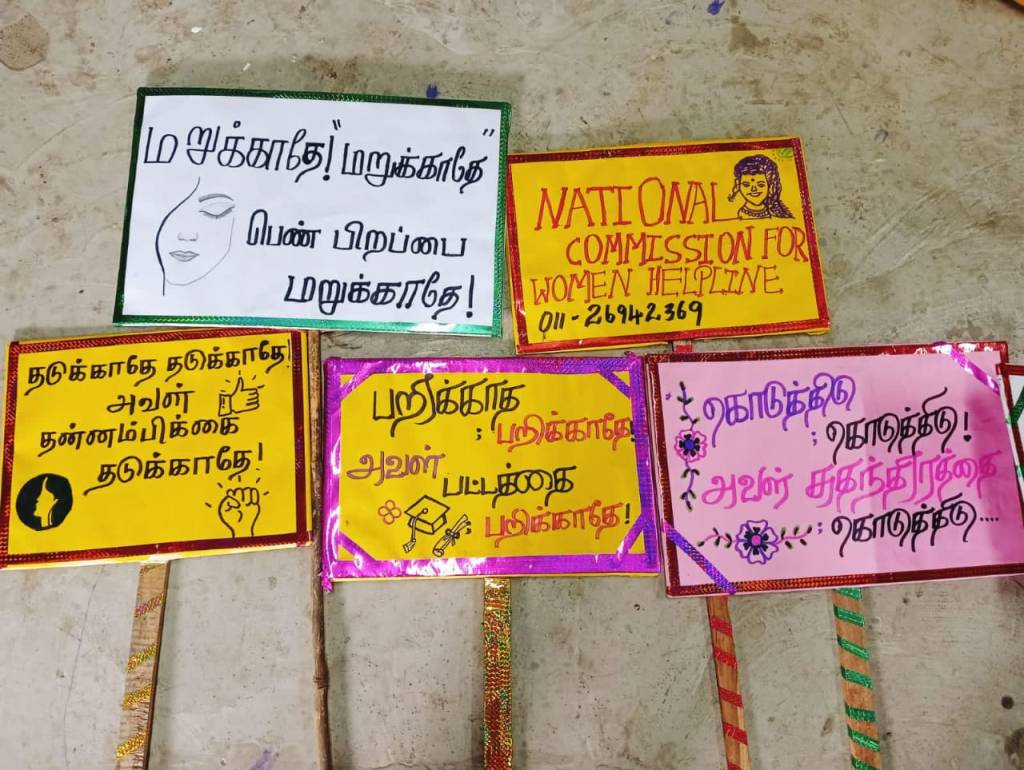 மறுக்காதே! "மறுக்காதே"
பெண் பிறப்பை
மறுக்காதே!
NATIONAL
COMMISSION FOR
WOMEN HELPLINE
011-26942369
தடுக்காதே தடுக்காதே!
அவள்
தன்னம்பிக்கை
தடுக்காதே!
பறிக்காத
; பறிக்காதே!
அவள்
பட்டத்தை
பறிக்காதே!
கொடுத்திடு
; கொடுத்திடு!
அவள் சுதந்திரத்தை
; கொடுத்திடு....